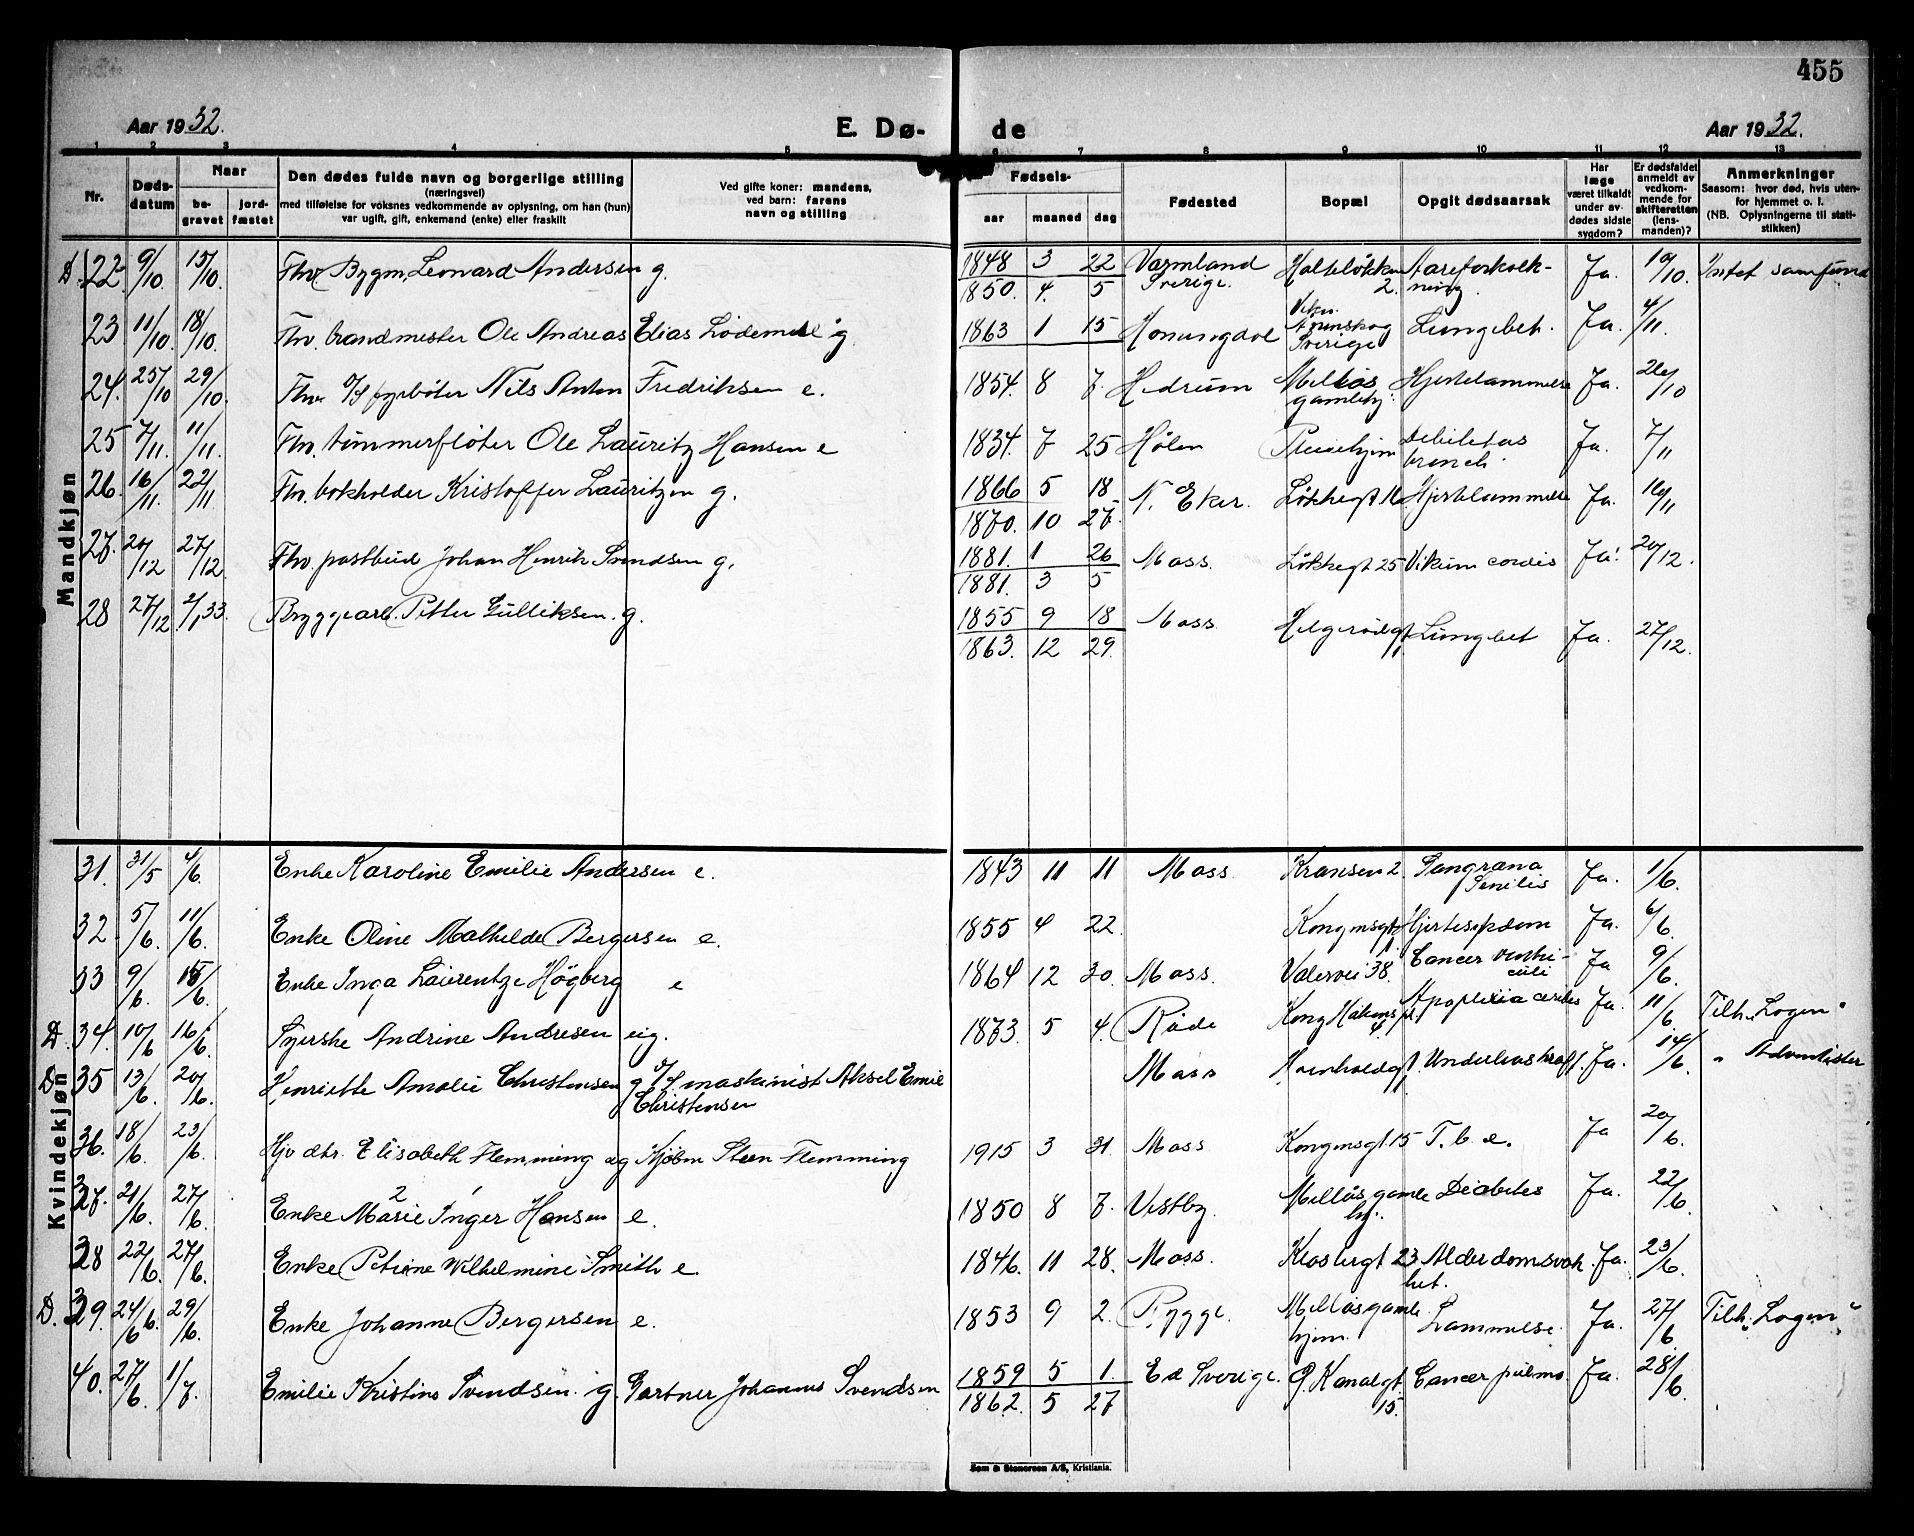 455
Aar 1932.
E. Dø-
de
Aar 1932.
1 2 3 4 5 6 7 8 9 10 11 12 13
Nr.
Døds-
datum
Naar
be-
gravet
jord-
fæstet
Den dødes fulde navn og borgerlige stilling
(næringsvei)
med tilføielse for voksnes vedkommende av oplysning, om han (hun)
var ugift, gift, enkemand (enke) eller fraskilt
Ved gifte koner: mandens,
ved barn: farens
navn og stilling
Fødsels-
aar maaned dag
Fødested
Bopæl
Opgit dødsaarsak
Har
læge
været tilkaldt
under av-
dødes sidste
sygdom?
Er dødsfaldet
anmeldt av
vedkom-
mende for
skifteretten
(lens-
manden)?
Anmerkninger
Saasom: hvor død, hvis uten-
for hjemmet o. l.
(NB. Oplysningerne til stati-
stikken)
Mandkjøn
D. 22. 9/10 15/10. Fhv. Bygm. Leonard Andersen g. 1848 3 22 Varmland Holteløkken Aareforkalk- Ja. 19/10. Intet samfund
1850. 4. 5 Sverige. 2. ning.
23 11/10 18/10. Fhv. brandmester Ole Andreas Elias Lødemel g 1863 1 15 Honningdal Sverige Lungebet. Ja. 4/11.
24. 25/10 29/10. Fhv. fyrbøter Nils Anton Fredriksen e. 1854. 8 7. Hedrum Melløs Hjertelammelse Ja. 26/10
gamlehj.
25 7/11. 11/11. Fhv. tømmerfløter Ole Lauritz Hansen e 1834. 7 25 Hølen Pleiehjem Debiletas Ja. 7/11
bronch.
26. 16/11. 22/11 Fhv. bokholder Kristoffer Lauritzen g. 1866 5 18 N. Eker. Løkkegt 16 Hjertelammelse Ja. 16/11
1870. 10 27.
27. 20/12 27/12. Fhv. postbud Johan Henrik Svendsen g. 1881. 1 26 Moss. Løkkegt 25 Vitium cordis Ja. 20/12.
1881. 3 5
28 27/12 2/1 33. Bryggearb. Petter Gulliksen. g. 1855 9 18 Moss Helgerødgt Lungbet Ja. 27/12.
1863. 12 29.
Kvindekjøn
31. 31/5 4/6. Enke Karoline Emilie Andersen e. 1843 11 11 Moss Kransen 2. Gangræna Ja. 1/6.
Senilis
32 5/6. 11/6. Enke Oline Mathilde Bergersen e. 1855 4 22. Kongensgt Hjertesykdom Ja. 6/6.
33 9/6. 15/6. Enke Inga Laurentze Högberg e 1864 12 30. Moss. Vålervei 38. Cancer ventri- Ja 9/6.
culi
D. 34. 10/6 16/6. Syerske Andrine Andresen ug. 1873. 5 4. Råde Kong Håkons pl. Apoplexia cerebri Ja. 11/6. Tilh. "Logen"
4.
D. 35 13/6. 20/6. Henriette Amalie Christensen g maskinist Aksel Emil Moss Underlivskræft. Ja. 14/6. " Adventister
Christensen
36. 18/6. 23/6. Hjv. dtr. Elisabeth Flemming ug Kjøbm Steen Flemming 1915 3 31. Moss Kongensgt 15 T. b. c. Ja 20/6.
37. 21/6. 27/6. Enke Marie Inger Hansen e. 1850 8 7. Vestby. Melløs gamle Diabetes Ja. 22/6.
2 1 hj.
38 22/6. 27/6. Enke Petrine Wilhelmine Smith e. 1846. 11 28. Moss. Klostergt 23 Alderdomsvak Ja. 23/6.
het.
D. 39. 24/6 29/6. Enke Johanne Bergersen e. 1853 9 2. Rygge. Melløsgamle Lammelse. Ja. 27/6 Tilh. "Logen"
hjem.
40. 27/6. 1/7. Emilie Kristine Svendsen g. Gartner Johannes Svendsen 1859 5 1. Ed Sverige. Ø. Kanalgt. Cancer pulmo. Ja. 28/6.
1862. 5 27 15.
Sem & Stenersen A/S, Kristiania.